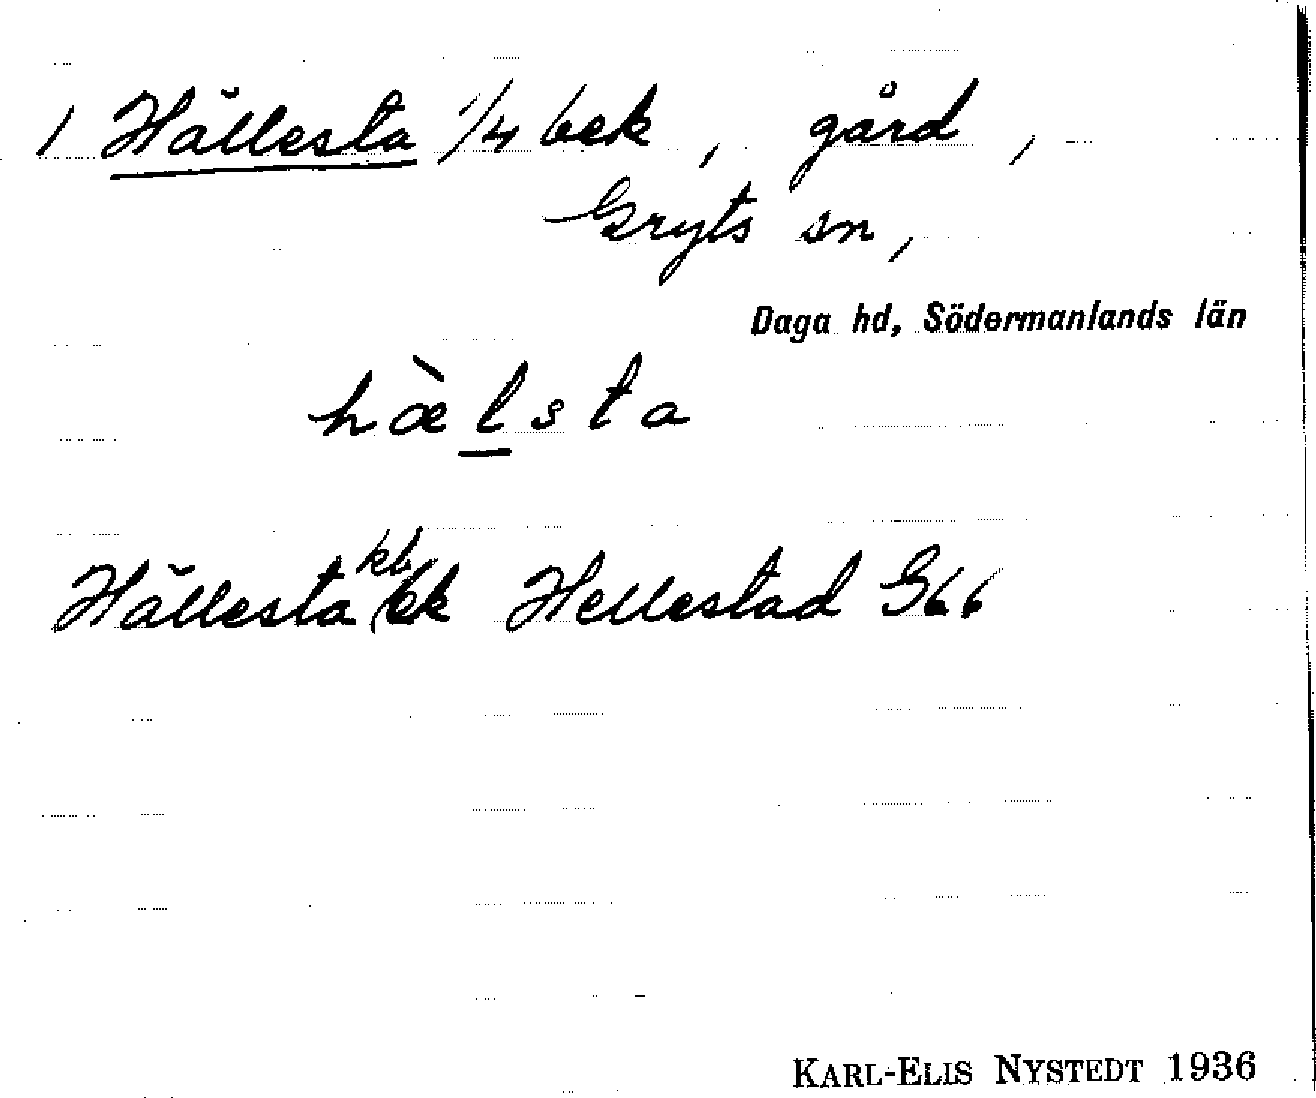 1 Hällesta 1/4 bek, gård,
Gryts sn,
Daga hd, Södermanlands län
hæ̀lsta
Hällesta kb ek Hellestad G66
KARL-ELIS NYSTEDT 1936